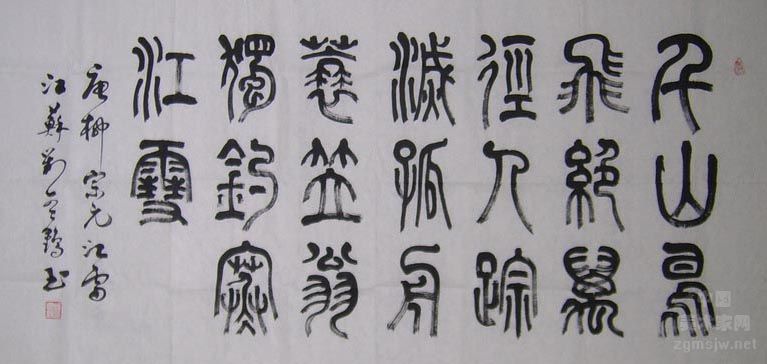 千山鳥
飛絕萬
徑人踪
滅孤舟
蓑笠翁
獨釣寒
江雪
唐柳宗元江雪
江蘇劉雲鶴书
美术家网
zgmsjw.net